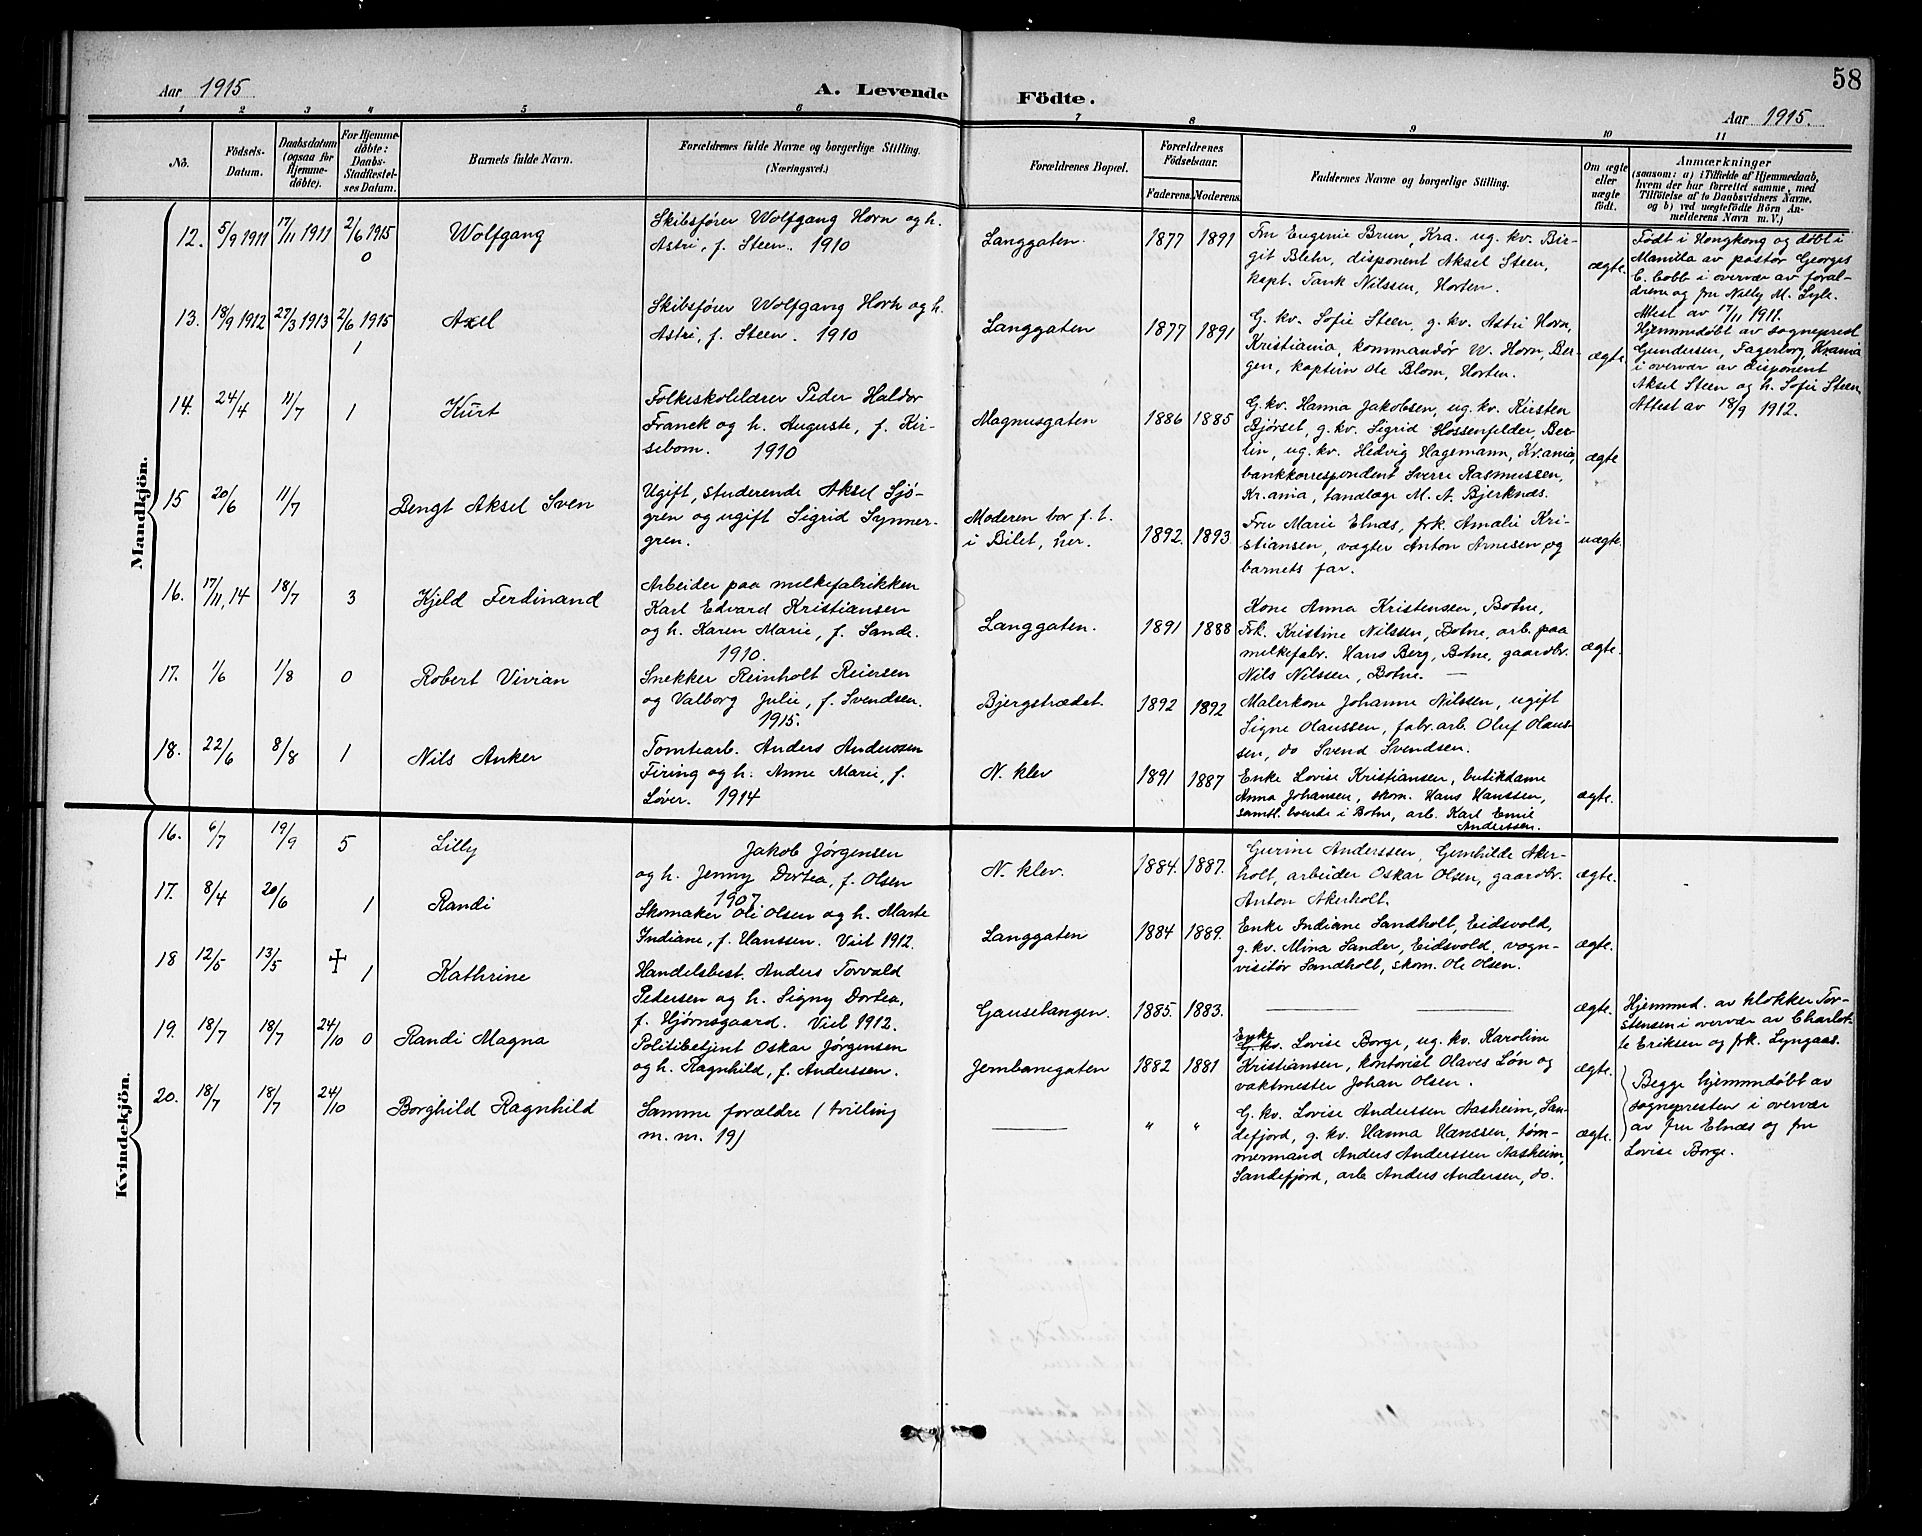 58
Aar 1915
A. Levende Födte.
Aar 1915.
1 2 3 4 5 6 7 8 9 10 11
No.
Födsels-
Datum.
Daabsdatum
(ogsaa for
Hjemme-
döbte).
For Hjemme-
döbte:
Daabs-
Stadfæstel-
ses Datum.
Barnets fulde Navn.
Forældrenes fulde Navne og borgerlige Stilling.
(Næringsvei.)
Forældrenes Bopæl.
Forældrenes
Födselsaar.
Faderens. Moderens.
Faddernes Navne og borgerlige Stilling.
Om ægte
eller
uægte
födt.
Anmærkninger
(saasom: a) i Tilfælde af Hjemmedaab,
hvem der har forrettet samme, med
Tilföielse af to Daabsvidners Navne.
og b) ved uægtefödte Börn An-
melderens Navn m. V.)
Mandkjön.
12. 5/9 1911 17/11 1911 2/6 1915
0
Wolfgang
Skibsfører Wolfgang Horn og h.
Astri, f. Steen. 1910
Langgaten. 1877 1891
Fru Eugenie Brun, Kra. ug. kv. Bir-
git Blehr, disponent Aksel Steen,
kapt. Tank Nilssen, Horten.
ægte.
Født i Hongkong og døbt i
Manilla av pastor Georges
C. Cobb i overvær av foræl-
drene og fru Nelly M. Lyle.
Attest av 17/11 1911.
13. 18/9 1912 27/3 1913 2/6 1915
1
Axel
Skibsfører Wolfgang Horn og h.
Astri, f. Steen. 1910
Langgaten 1877 1891
G. kv. Sofie Steen, g. kv. Astri Horn,
Kristiania, kommandør W. Horn, Ber-
gen, kaptein Ole Blom, Horten.
ægte.
Hjemmedøbt av sogneprest
Gundersen, Fagerborg, Krania
i overvær av disponent
Aksel Steen og h. Sofie Steen
Attest av 18/9 1912.
14. 24/4 11/7 1
Kurt
Folkeskolelærer Peder Haldor
Franck og h. Auguste, f. Kir-
sebom. 1910
Magnusgaten 1886 1885
G. kv. Hanna Jakobsen, ug. kv. Kirsten
Bjørset, g. kv. Sigrid Hossenfelder, Ber-
lin, ug. kv. Hedvig Hagemann, Kr.ania,
bankkorrespondent Sverre Rasmussen,
Kr.ania, tandlæge M. A. Bjerknæs.
ægte
15 20/6 11/7
Bengt Aksel Sven
Ugift, studerende Aksel Sjø-
gren og ugift Sigrid Synner-
gren.
Moderen bor f. t.
i Bilet, her.
1892. 1893.
Fru Marie Elnæs, frk. Amalie Kri-
stiansen, vægter Anton Arnesen og
barnets far.
uægte.
16. 17/11, 14 18/7 3
Kjeld Ferdinand
Arbeider paa melkefabrikken
Karl Edvard Kristiansen
og h. Karen Marie, f. Sande.
1910.
Langgaten. 1891 1888
Kone Anna Kristensen, Botne,
Frk. Kristine Nilssen, Botne, arb. paa
melkefabr. Hans Berg, Botne, gaardbr.
Nils Nilssen, Botne.
ægte.
17. 1/6 1/8 0
Robert Vivian
Snekker Reinholt Reiersen
og Valborg Julie, f. Svendsen.
1915.
Bjergstrædet. 1892 1892
Malerkone Johanne Nilssen, ugift
Signe Olaussen, fabr.arb. Oluf Olaus-
sen, do Svend Svendsen.
18. 22/6 8/8 1
Nils Anker
Tomtearb. Anders Anderssen
Firing og h. Anne Marie, f.
Løver. 1914
N. klev 1891 1887
Enke Lovise Kristiansen, butikdame
Anna Johansen, skom. Hans Hanssen,
samtl. boende i Botne, arb. Karl Emil
Anderssen.
ægte.
Kvindekjön.
16. 6/7 19/9 5
Lilly
Jakob Jørgensen
og h. Jenny Dortea, f. Olsen
1907.
N. klev. 1884. 1887.
Gurine Anderssen, Gunhilde Aker-
holt, arbeider Oskar Olsen, gaardbr.
Anton Akerholt.
ægte.
17. 8/4 20/6 1
Randi
Skomaker Ole Olsen og h. Marte
Indiane, f. Hanssen. Viet 1912.
Langgaten 1884 1889.
Enke Indiane Sandholt, Eidsvold,
g. kv. Mina Sander, Eidsvold, vogn-
visitør Sandholt, skom. Ole Olsen.
ægte.
18 12/5 13/5 † 1
Kathrine
Handelsbest. Anders Torvald
Pedersen og h. Signy Dortea,
f. Hjørnsgaard. Viet 1912.
Gauselangen. 1885. 1883.
ægte.
Hjemmed. av klokker Tor-
stensen i overvær av Charlot-
te Eriksen og frk. Lyngaas.
19. 18/7 18/7 24/10 0
Randi Magna
Politibetjent Oskar Jørgensen
og h. Ragnhild, f. Anderssen.
Jernbanegaten 1882 1881
Enke
G. kv. Lovise Borge, ug. kv. Karoline
Kristiansen, kontorist Olaves Løn og
vaktmester Johan Olsen.
ægte.
Begge hjemmdøbt av
sognepresten i overvær
av fru Elnæs og fru
Lovise Borge.
20. 18/7 18/7 24/10
Borghild Ragnhild
Samme forældre (tvilling
m. nr. 19)
" "
G. kv. Lovise Anderssen Aasheim, San-
defjord, g. kv. Hanna Hanssen, tøm-
mermand Anders Anderssen Aasheim,
Sandefjord, arb. Anders Andersen, do.
ægte.